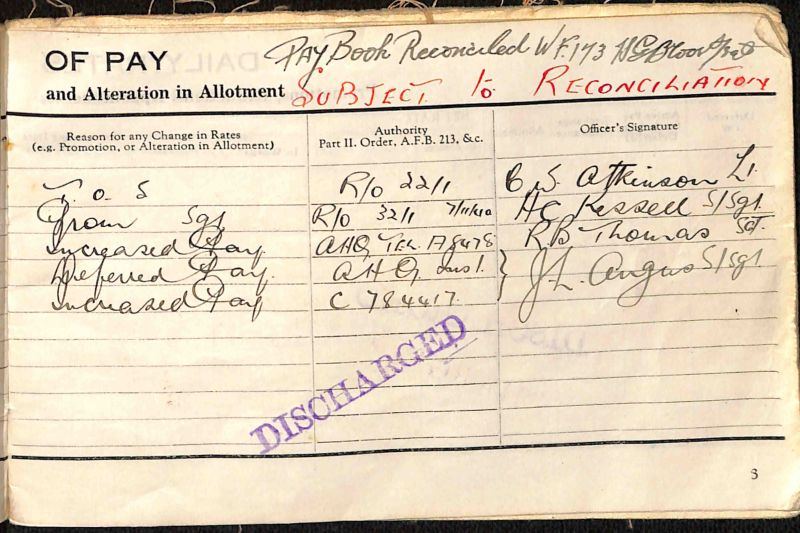 OF PAY
Pay Book Reconciled W.F. 173
and Alteration in Allotment
SUBJECT to RECONCILIATION
Reason for any Change in Rates
(e.g. Promotion, or Alteration in Allotment)
Authority
Part II. Order, A.F.B. 213, &c.
Officer's Signature
T. O. S R/o 22/1 C. S. Atkinson Lt.
From Sgt R/o 32/1 7/11/40 HC Kessell S/Sgt.
increased Pay AHQ TEL A8478 RB Thomas Sgt.
Deferred Pay. AHQ inst. J. L. Angus S/Sgt.
increased Pay C 784417.
DISCHARGED
3